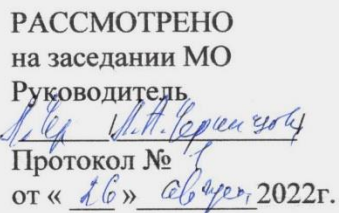 РАССМОТРЕНО
на заседании МО
Руководитель
Протокол № 1
от « 26 » август 2022г.